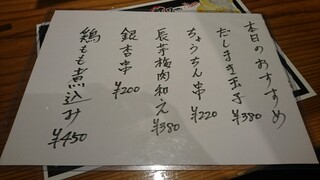 本日のおすすめ
だしまき玉子 ¥380
ちょうちん串 ¥220
長芋梅肉和え ¥380
銀杏串 ¥200
鶏もも煮込み ¥450